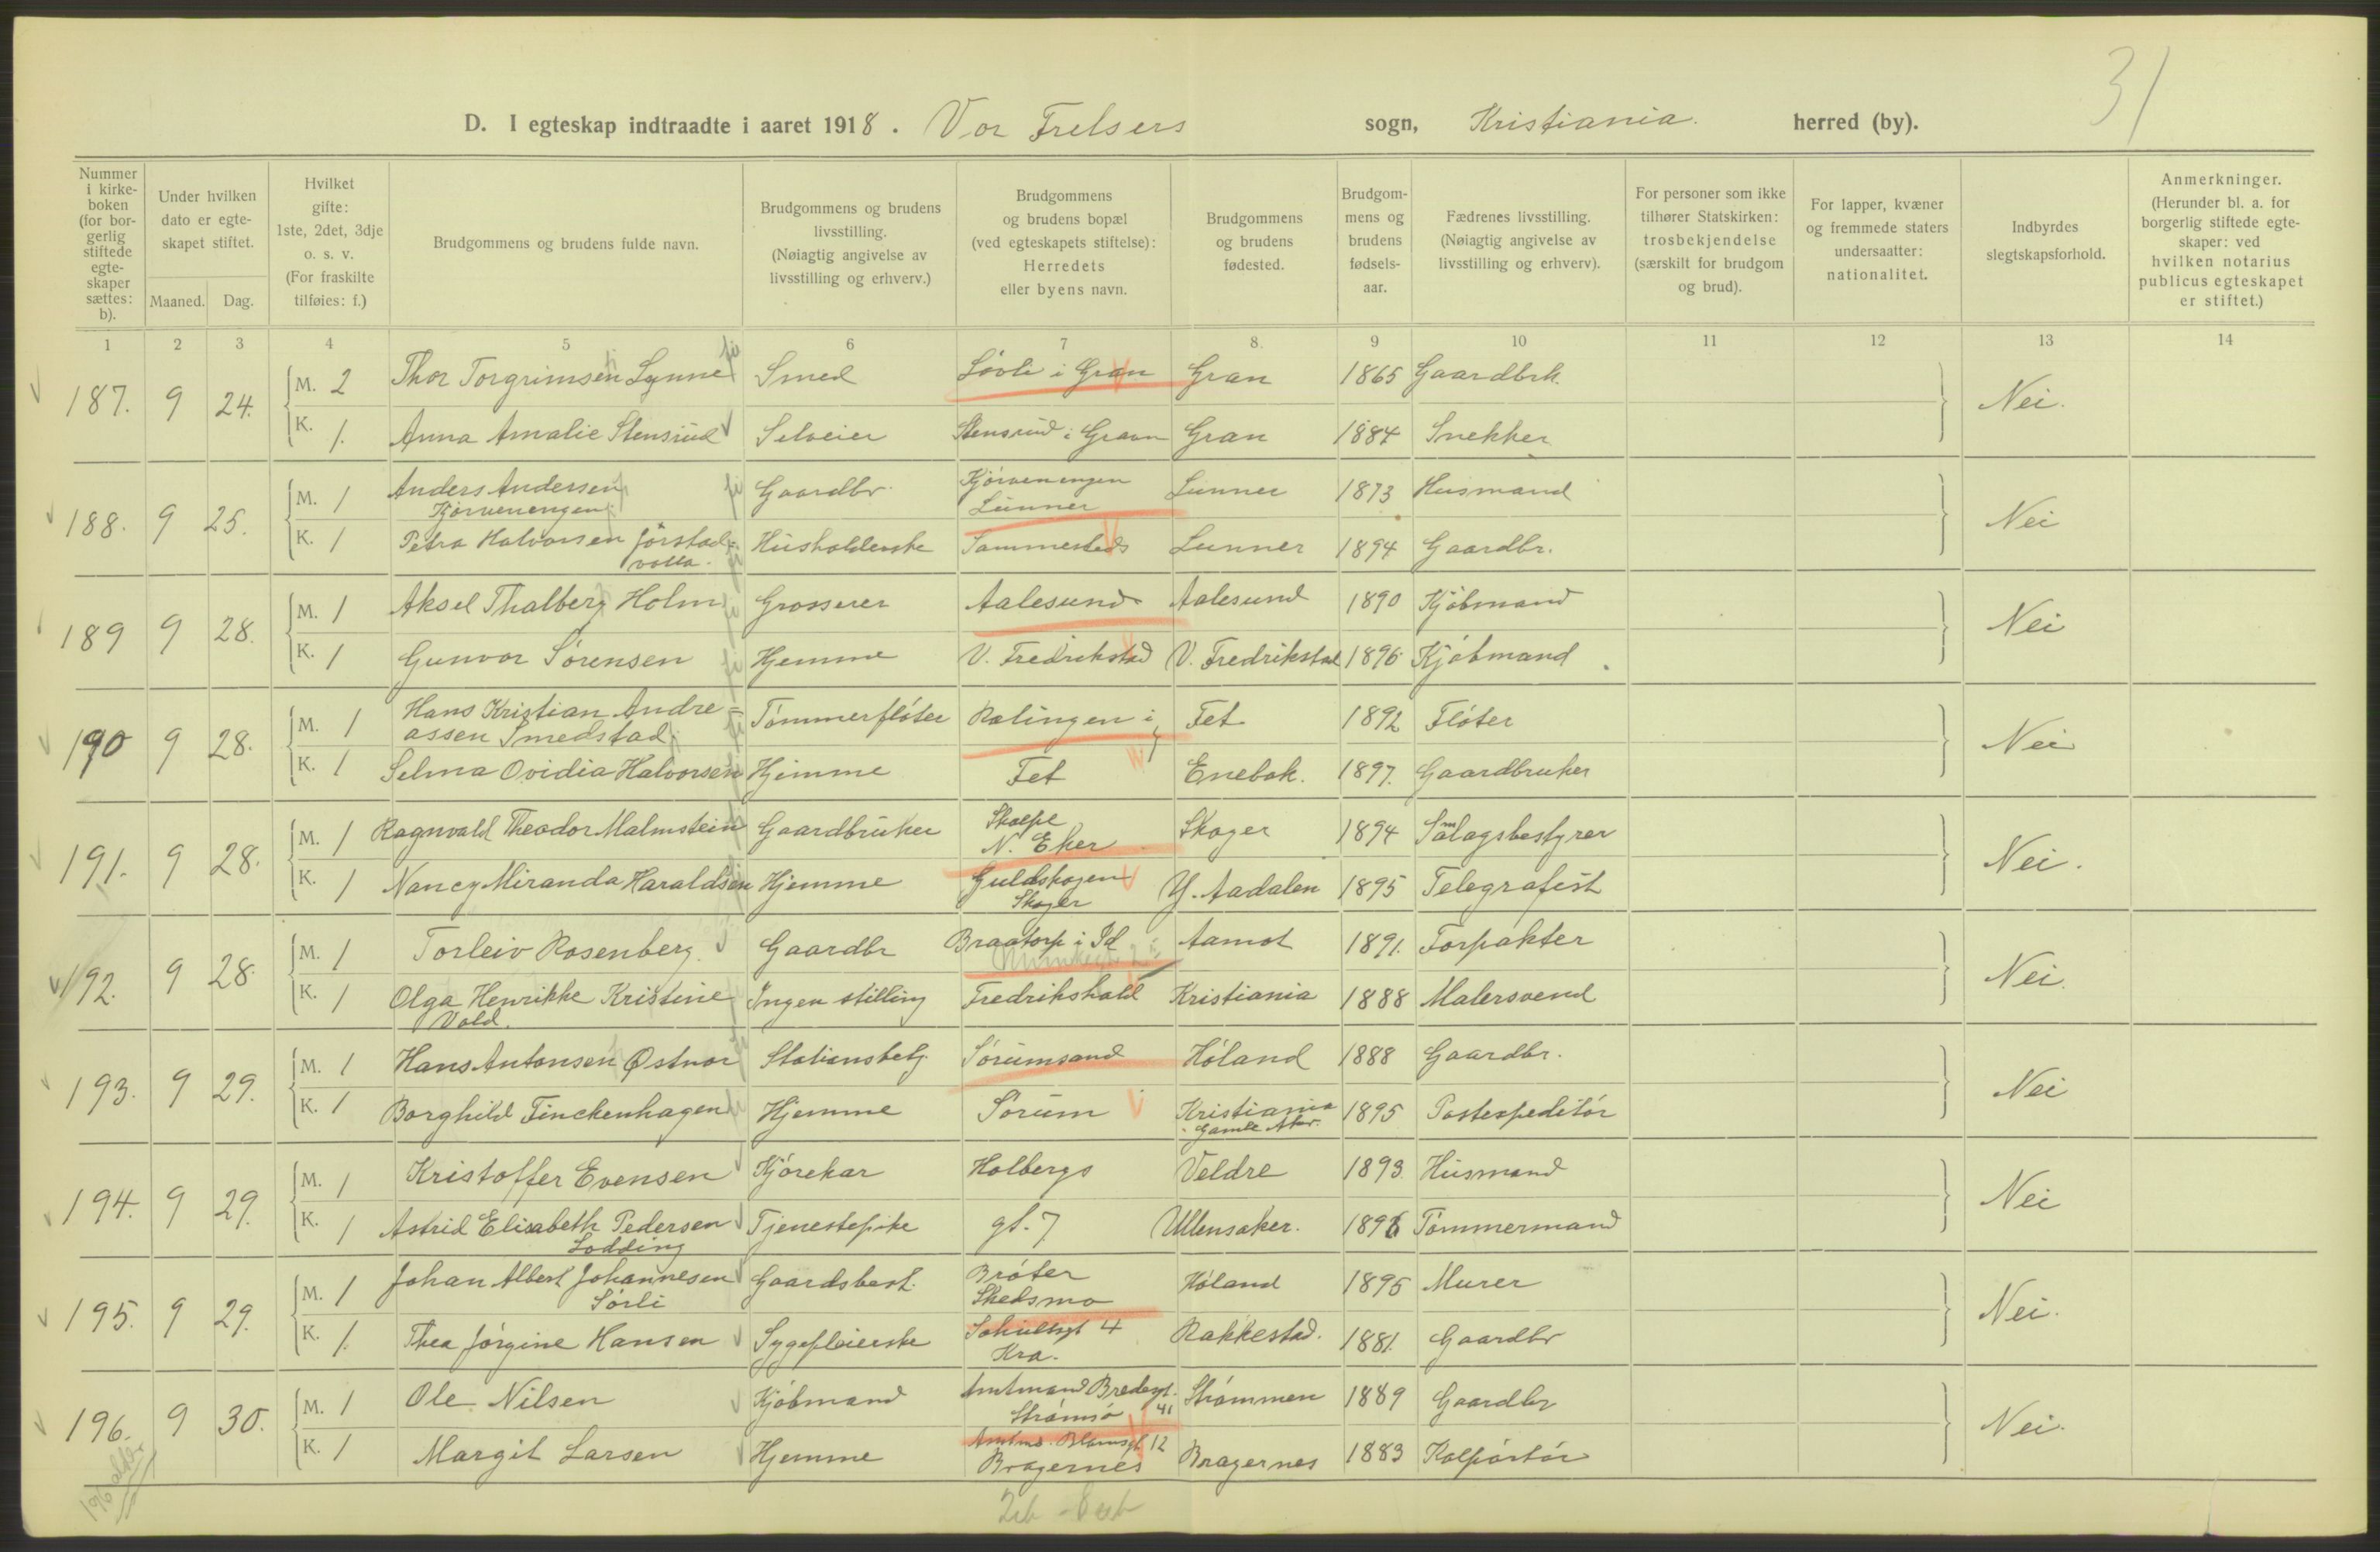 31
D. I egteskap indtraadte i aaret 1918. Vor Frelsers sogn, Kristiania herred (by).
Nummer i kirkeboken (for borgerlig stiftede egteskaper sættes: b).
Under hvilken dato er egteskapet stiftet.
Maaned. Dag.
Hvilket gifte: 1ste, 2det, 3dje o. s. v. (For fraskilte tilføies: f.)
Brudgommens og brudens fulde navn.
Brudgommens og brudens livsstilling. (Nøiagtig angivelse av livsstilling og erhverv.)
Brudgommens og brudens bopæl (ved egteskapets stiftelse): Herredets eller byens navn.
Brudgommens og brudens fødested.
Brudgommens og brudens fødselsaar.
Fædrenes livsstilling. (Nøiagtig angivelse av livsstilling og erhverv).
For personer som ikke tilhører Statskirken: trosbekjendelse (særskilt for brudgom og brud).
For lapper, kvæner og fremmede staters undersaatter: nationalitet.
Indbyrdes slegtskapsforhold.
Anmerkninger. (Herunder bl. a. for borgerlig stiftede egteskaper: ved hvilken notarius publicus egteskapet er stiftet.)
1 2 3 4 5 6 7 8. 9 10 11 12 13 14
187. 9 24. M. 2 Thor Torgrimsen Lynne Smed Løvli i Gran Gran 1865 Gaardbrk. Nei.
K. 1. Anna Amalie Stensrud Selveier Stensrud i Gran Gran 1884 Snekker
188. 9 25. M. 1 Anders Andersen Kjørvenengen Gaardbr. Kjørvenengen Lunner Lunner 1873 Husmand Nei
K. 1 Petra Halvorsen Jørstadvolla. Husholderske Sammesteds Lunner 1894 Gaardbr.
189 9 28. M. 1 Aksel Thalberg Holm Grosserer Aalesund Aalesund 1890 Kjøbmand Nei
K. 1 Gunvor Sørensen Hjemme V. Fredrikstad V. Fredrikstad 1896 Kjøbmand
190 9 28. M. 1 Hans Kristian Andreassen Smedstad Tømmerfløter Rælingen i Fet 1892 Fløter Nei
K. 1 Selma Ovidia Halvorsen Hjemme Fet Enebak. 1897. Gaardbruker
191. 9 28. M. 1 Ragnvald Theodor Malmstein Gaardbruker N. Eker Skoger 1894 Samlagsbestyrer Nei.
K. 1 Nancy Miranda Haraldsen Hjemme Guldskogen Skoger Y. Aadalen 1895 Telegrafist
192. 9 28. M. 1 Torleiv Rosenberg Gaardbr Braatorp i Id Aamot 1891. Forpakter Nei.
K. 1 Olga Henrikke Kristine Vold. Ingen stilling Fredrikshald Kristiania 1888 Malersvend
193. 9 29. M. 1 Hans Antonsen Østnor Stationsbetj. Sørumsand Høland 1888 Gaardbr. Nei
K. 1 Borghild Finckenhagen Hjemme Sørum Kristiania Gamle Aker. 1895 Postexpeditør
194. 9 29. M. 1 Kristoffer Evensen Kjørekar Holbergs Veldre 1893. Husmand Nei
K. 1 Astrid Elisabeth Pedersen Lodding Tjenestepike gt. 7 Ullensaker. 1896 Tømmermand
195. 9 29. M. 1 Johan Albert Johannesen Sørli Gaardsbest. Brøter Skedsmo Høland 1895 Murer Nei.
K. 1. Thea Jørgine Hansen Sygepleierske Schultzgt 4 Kra. Rakkestad. 1881. Gaardbr
196. 9 30. M. 1 Ole Nilsen Kjøbmand Amtmand Bredegt. 41 Strømsø Strømmen 1889 Gaardbr Nei.
K. 1 Margit Larsen Hjemme Amtmd. Blomsgt 12 Bragernes Bragernes 1883 Kolportør